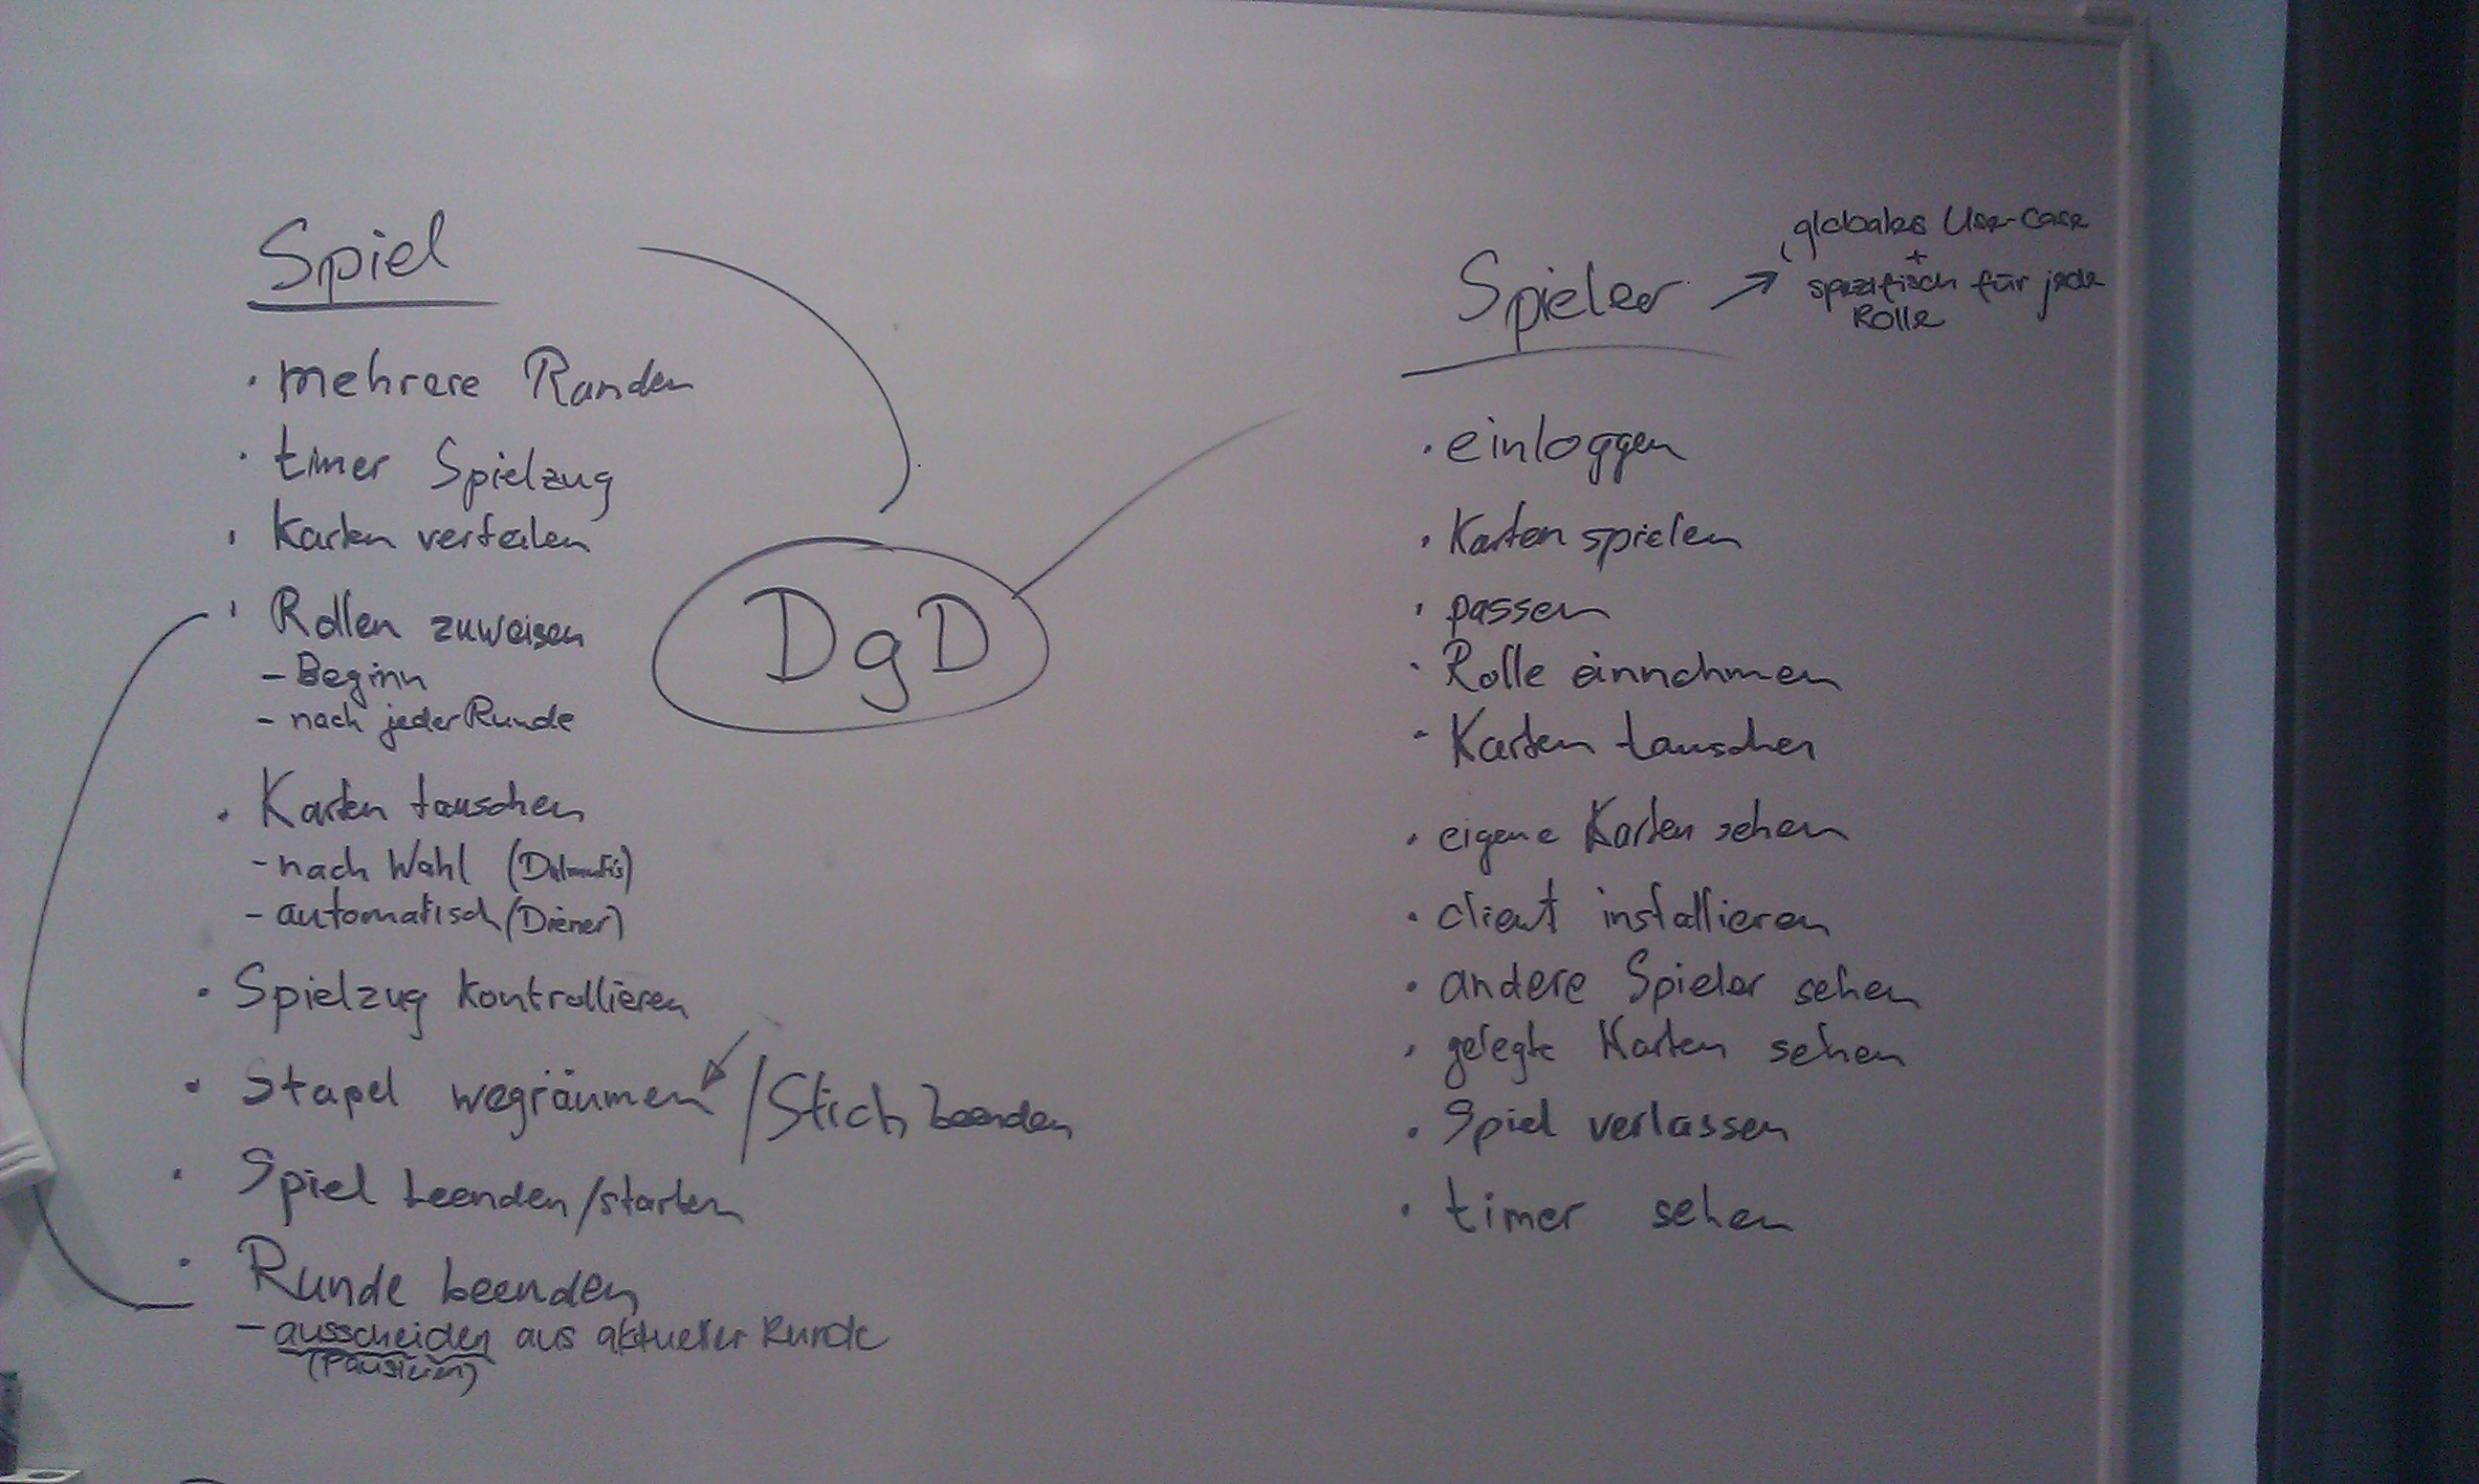 Spiel
· mehrere Runden
· timer Spielzug
· Karten verteilen
· Rollen zuweisen
- Beginn
- nach jeder Runde
· Karten tauschen
- nach Wahl (Dalmutis)
- automatisch (Diener)
· Spielzug kontrollieren
· Stapel wegräumen / Stich beenden
· Spiel beenden/starten
· Runde beenden
- ausscheiden aus aktueller Runde
(Pausieren)
DgD
Spieler
globales Use-Case
+
spezifisch für jede
Rolle
· einloggen
· Karten spielen
· passen
· Rolle einnehmen
· Karten tauschen
· eigene Karten sehen
· client installieren
· andere Spieler sehen
· gelegte Karten sehen
· Spiel verlassen
· timer sehen